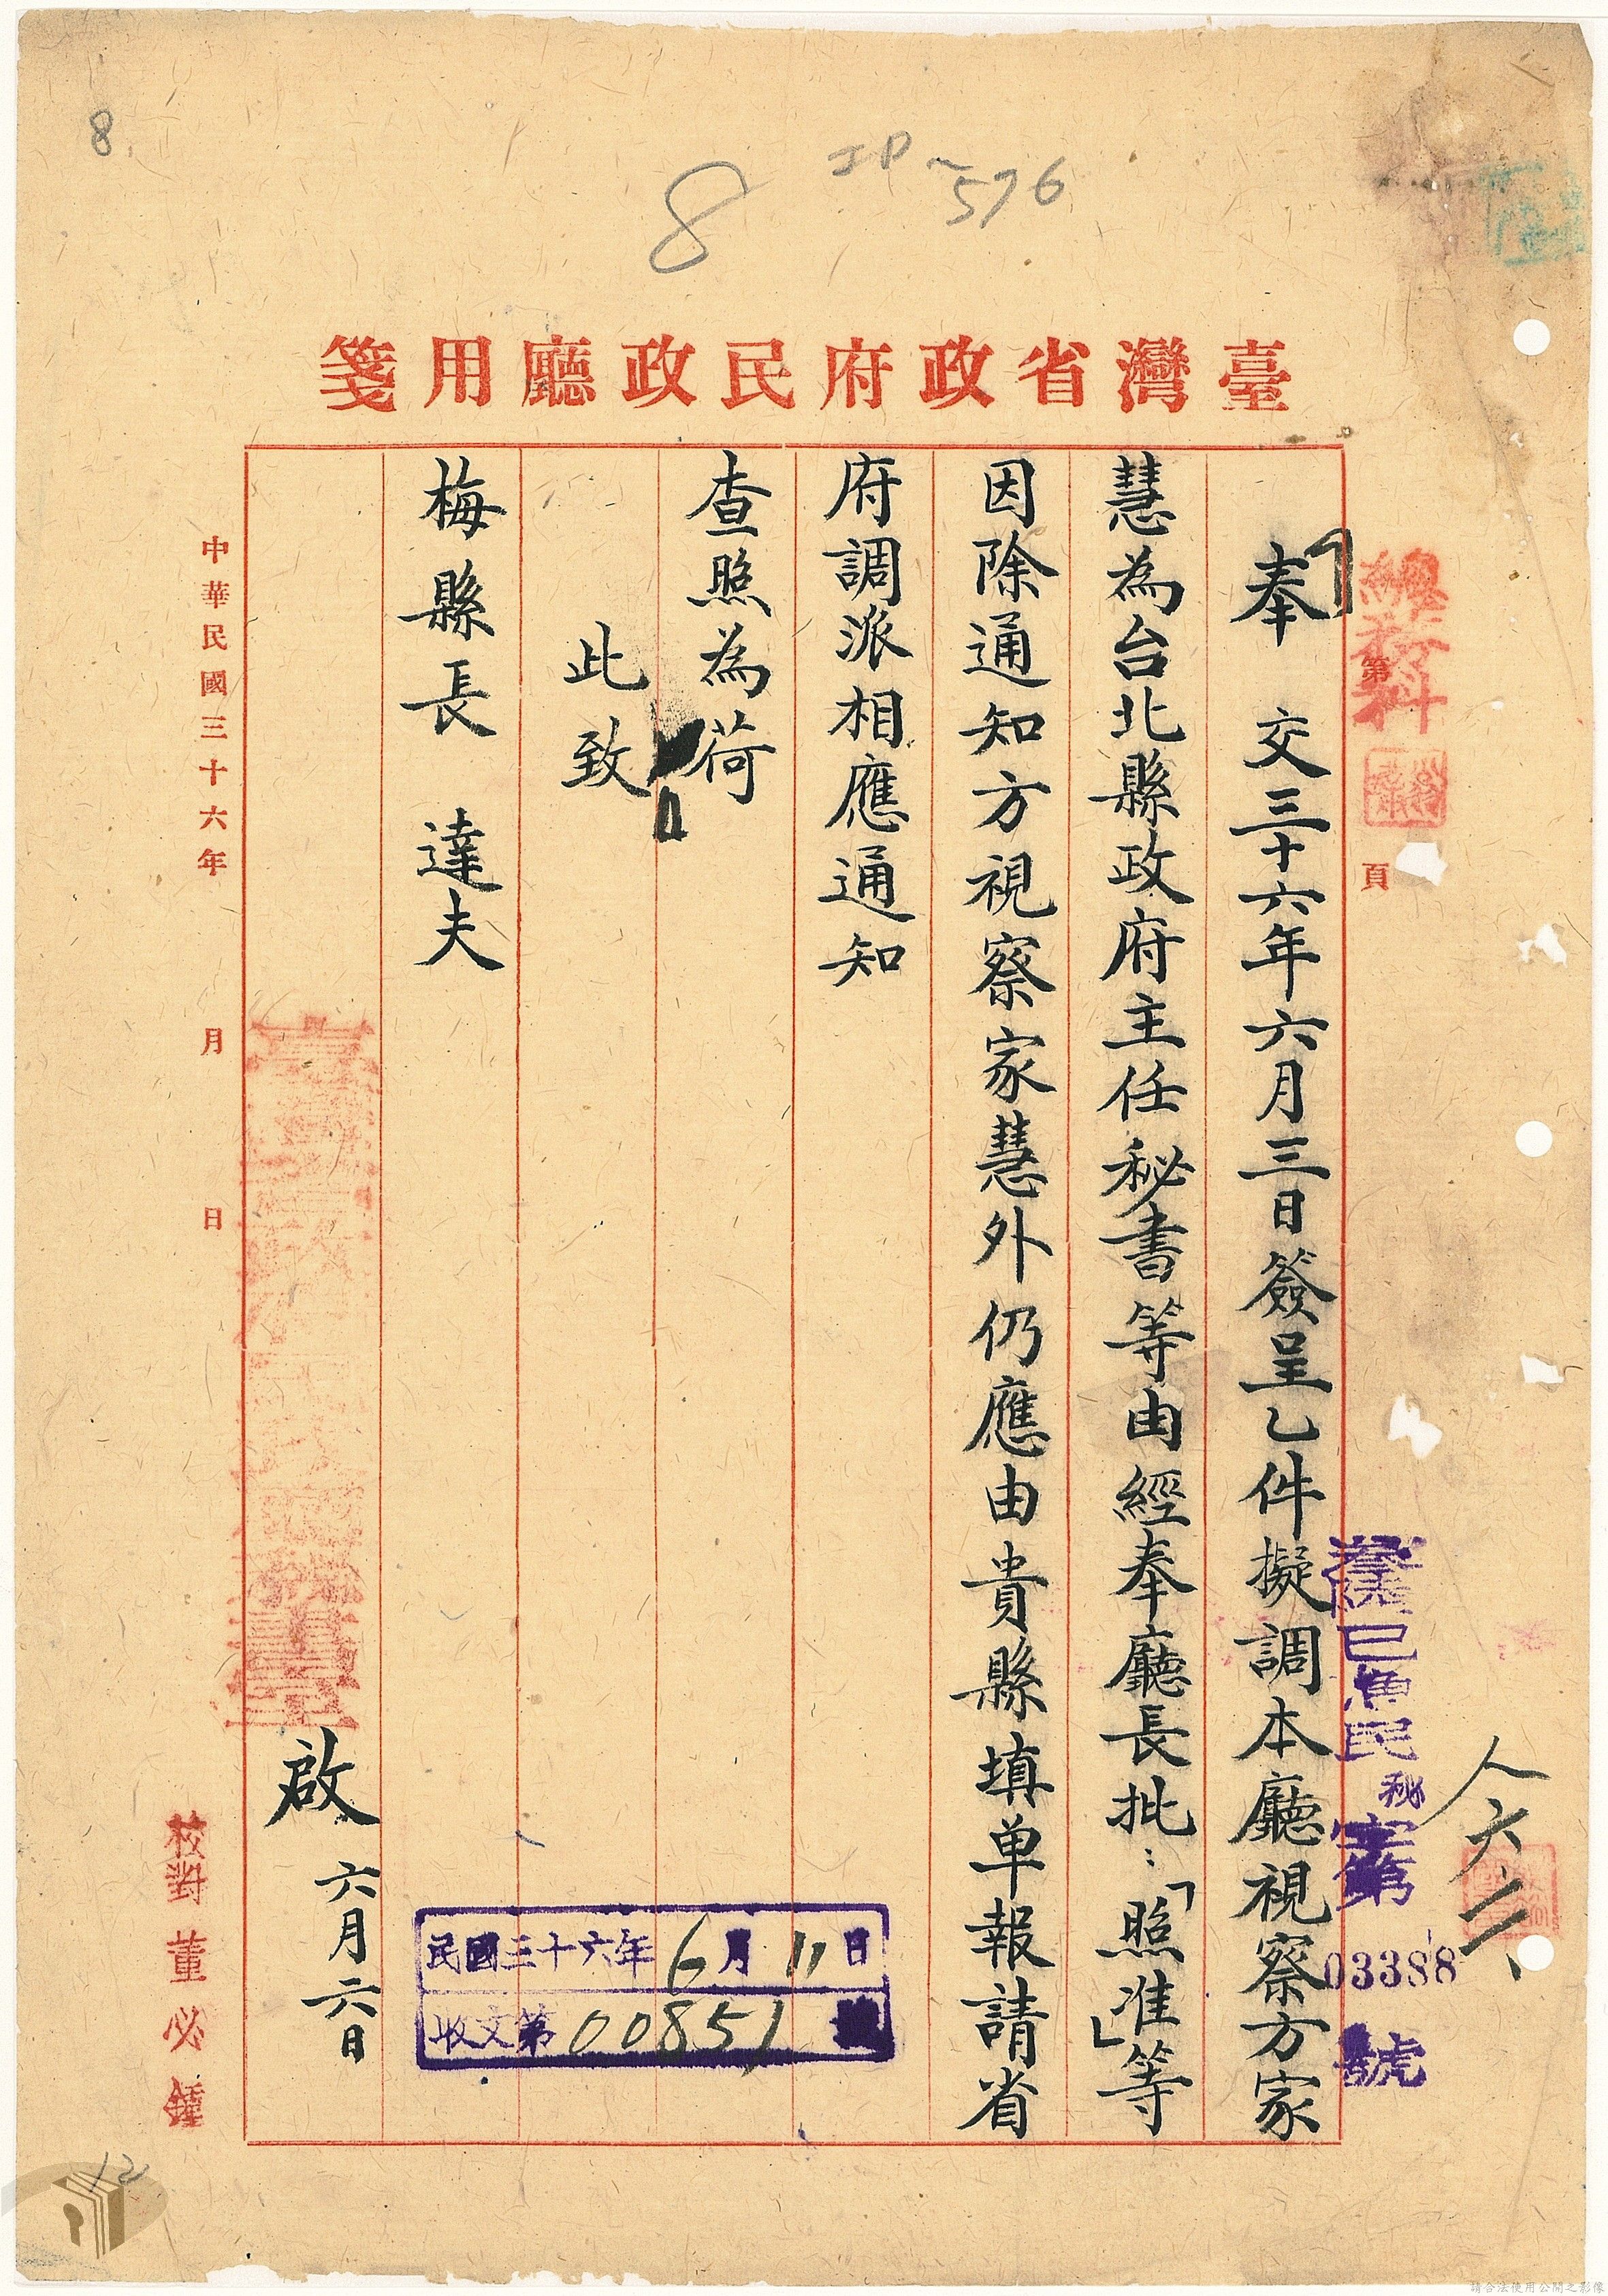 8
8
576
臺灣省政府民政廳用箋
總務科
第 頁
奉 交三十六年六月三日簽呈乙件擬調本廳視察方家
慧為台北縣政府主任秘書等由經奉廳長批：「照准」等
因除通知方視察家慧外仍應由貴縣填单報請省
府調派相應通知
查照為荷
此致
梅縣長 達夫
啟 六月六日
已魚民秘字第03388號
民國三十六年6月11日
收文第00851號
中華民國三十六年 月 日
校對 董必鐘
12
請合法使用公開之影像